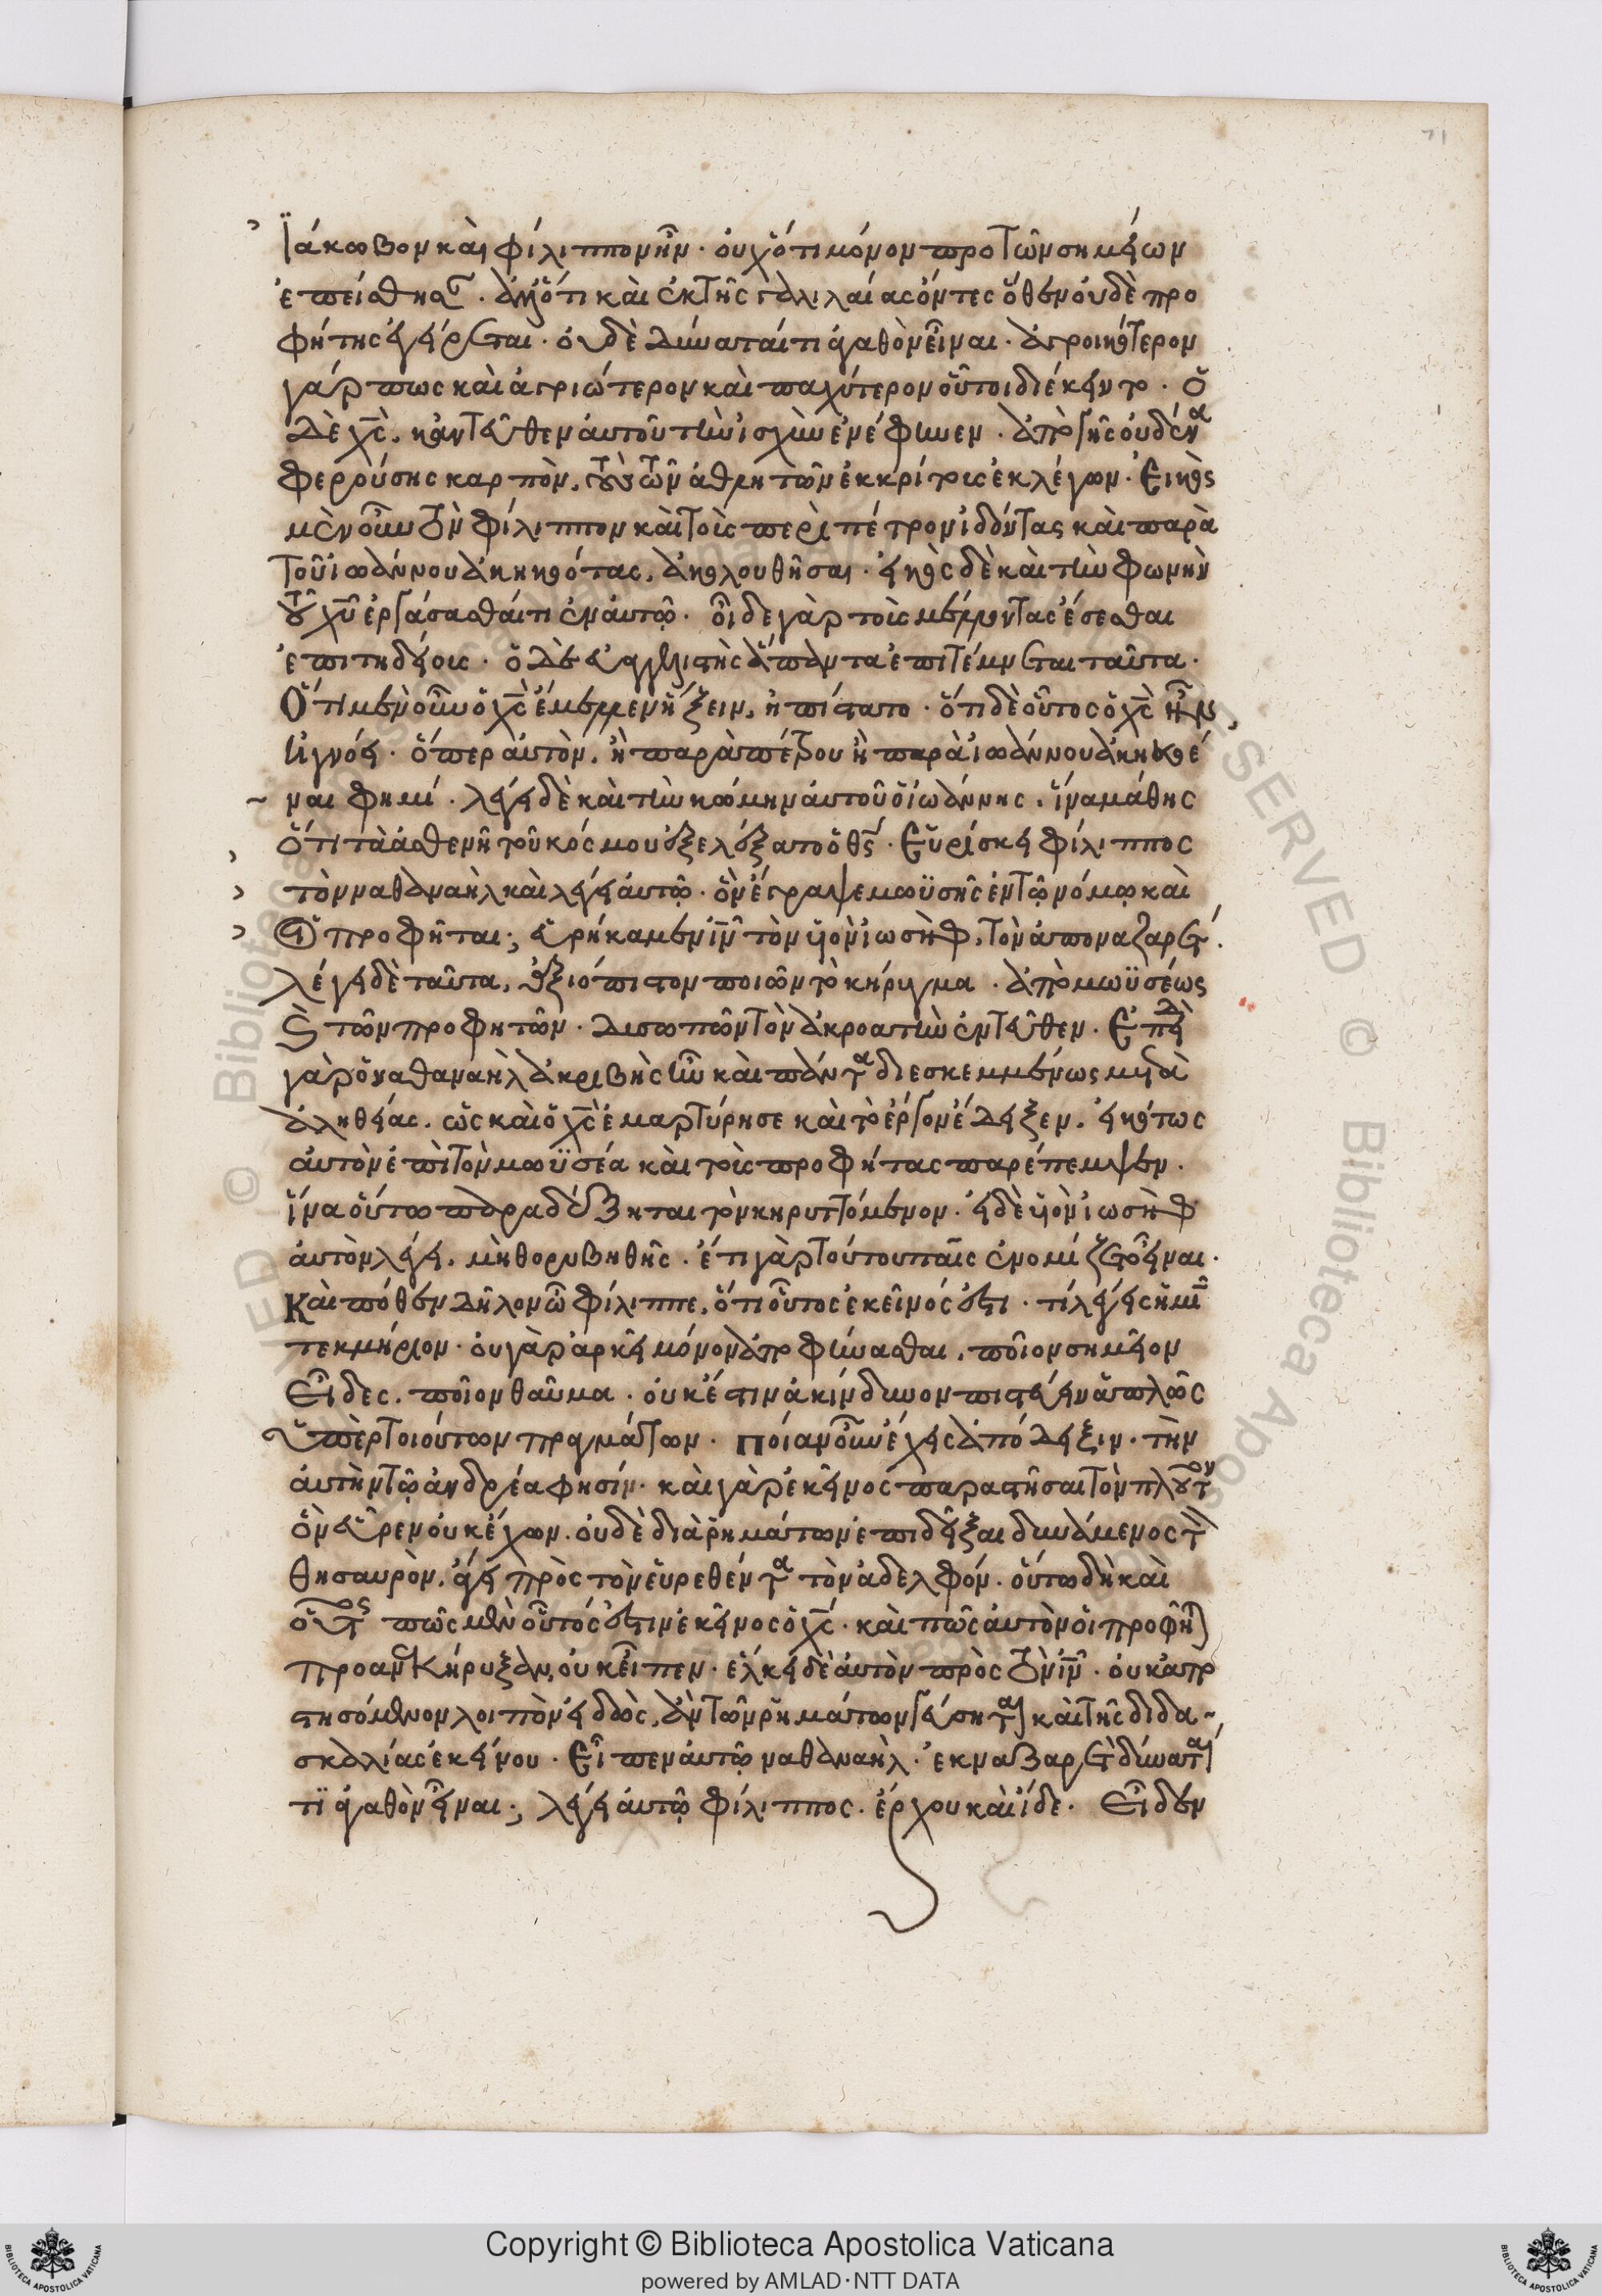 71
Ἰάκωβον καὶ φίλιππον ἦν · οὐχ ὅτι μόνον προ τῶν σημείων
ἐπείσθησαν · ἀλλ' ὅτι καὶ ἐκ τῆς γαλιλαίας ὄντες ὅθεν οὐδὲ προ
φήτης ἐγείρεται · οὐδὲ δύναταί τι ἀγαθὸν εἶναι · ἀγροικότερον
γάρ πως καὶ ἀγριώτερον καὶ παχύτερον οὗτοι διέκειντο · ὁ
δὲ χς, κἀντεῦθεν αὐτοῦ τὴν ἰσχὺν ἐνέφῃνεν · ἀπὸ γῆς οὐδένα
φερούσης καρπὸν, τοὺς τῶν μαθητῶν ἐκκρίτους ἐκλέγων · Εἰκὸς
μὲν οὖν τὸν φίλιππον καὶ τοῖς περὶ πέτρον ἰδόντας καὶ παρὰ
τοῦ ἰωάννου ἀκηκοότας, ἀκολουθῆσαι · εἰκὸς δὲ καὶ τὴν φωνὴν
τοῦ χυ ἐργάσασθαί τι ἐν αὐτῷ · οἶδε γὰρ τοὺς μέλλοντας ἔσεσθαι
ἐπιτηδείους · ὁ δὲ εὐαγγελιστὴς ἅπαντα ἐπιτέμνεται ταῦτα ·
Ὅτι μὲν οὖν ὁ χς ἔμελλεν ἥξειν, ἠπίστατο · ὅτι δὲ οὗτος ὁ χς ἦν,
ἠγνόει · ὅπερ αὐτὸν, ἢ παρὰ πέτρου ἢ παρὰ ἰωάννου ἀκηκοέ
ναι φημί · λέγει δὲ καὶ τὴν κώμην αὐτοῦ ὁ ἰωάννης, ἵνα μάθῃς
ὅτι τὰ ἀσθενῆ τοῦ κόσμου ἐξελέξατο ὁ θς · Εὑρίσκει φίλιππος
τὸν ναθαναὴλ καὶ λέγει αὐτῷ · ὃν ἔγραψε μωϋσῆς ἐν τῷ νόμῳ καὶ
οἱ προφῆται ; εὑρήκαμεν ιν τὸν υἱὸν ἰωσὴφ, τὸν ἀπο ναζαρέτ.
λέγει δὲ ταῦτα, ἀξιόπιστον ποιῶν τὸ κήρυγμα · ἀπὸ μωϋσέως
καὶ τῶν προφητῶν · δυσωπῶν τὸν ἀκροατὴν ἐντεῦθεν · Ἐπειδὴ
γὰρ ὁ ναθαναὴλ ἀκριβὴς ἦν καὶ πάντα διεσκεμμένως μετὰ
ἀληθείας, ὡς καὶ ὁ χς ἐμαρτύρησε καὶ τὸ ἔργον ἔδειξεν, εἰκότως
αὐτὸν ἐπὶ τὸν μωϋσέα καὶ τοὺς προφήτας παρέπεμψεν ·
ἵνα οὕτω παραδέξηται τὸν κηρυττόμενον · εἰ δὲ υἱὸν ἰωσὴφ
αὐτὸν λέγει, μὴ θορυβηθῇς · ἔτι γὰρ τούτου παῖς ἐνομίζετο εἶναι ·
Καὶ πόθεν δῆλον ὦ φίλιππε, ὅτι οὗτος ἐκεῖνός ἐστι · τί λέγεις ἡμῖν
τεκμήριον · οὐ γὰρ ἀρκεῖ μόνον ἀποφήνασθαι, ποῖον σημεῖον
Εἶδες, ποῖον θαῦμα · οὐκ ἔστιν ἀκίνδυνον πιστεύειν ἁπλῶς
ὑπὲρ τοιούτων πραγμάτων · ποίαν οὖν ἔχεις ἀπόδειξιν · τὴν
αὐτὴν τῷ ἀνδρέα φησίν · καὶ γὰρ ἐκεῖνος παραστῆσαι τὸν πλοῦτον
ὃν εὗρεν οὐκ ἔχων, οὐδὲ διὰ ῥημάτων ἐπιδεῖξαι δυνάμενος τὸν
θησαυρὸν, ἄγει πρὸς τὸν εὑρεθέντα τὸν ἀδελφόν · οὕτω δὴ καὶ
οὗτος πῶς μὲν οὗτός ἐστιν ἐκεῖνος ὁ χς · καὶ πῶς αὐτὸν οἱ προφῆται
προανεκήρυξαν, οὐκ εἶπεν · ἕλκει δὲ αὐτὸν πρὸς τὸν ιν · οὐκ ἀπο
στησόμενον λοιπὸν εἰδὼς, ἂν τῶν ῥημάτων γεύσηται καὶ τῆς διδα
σκαλίας ἐκείνου · Εἶπεν αὐτῷ ναθαναὴλ · ἐκ ναζαρὲτ δύναταί
τι ἀγαθὸν εἶναι ; λέγει αὐτῷ φίλιππος · ἔρχου καὶ ἴδε · Εἶδεν
Copyright © Biblioteca Apostolica Vaticana
powered by AMLAD·NTT DATA